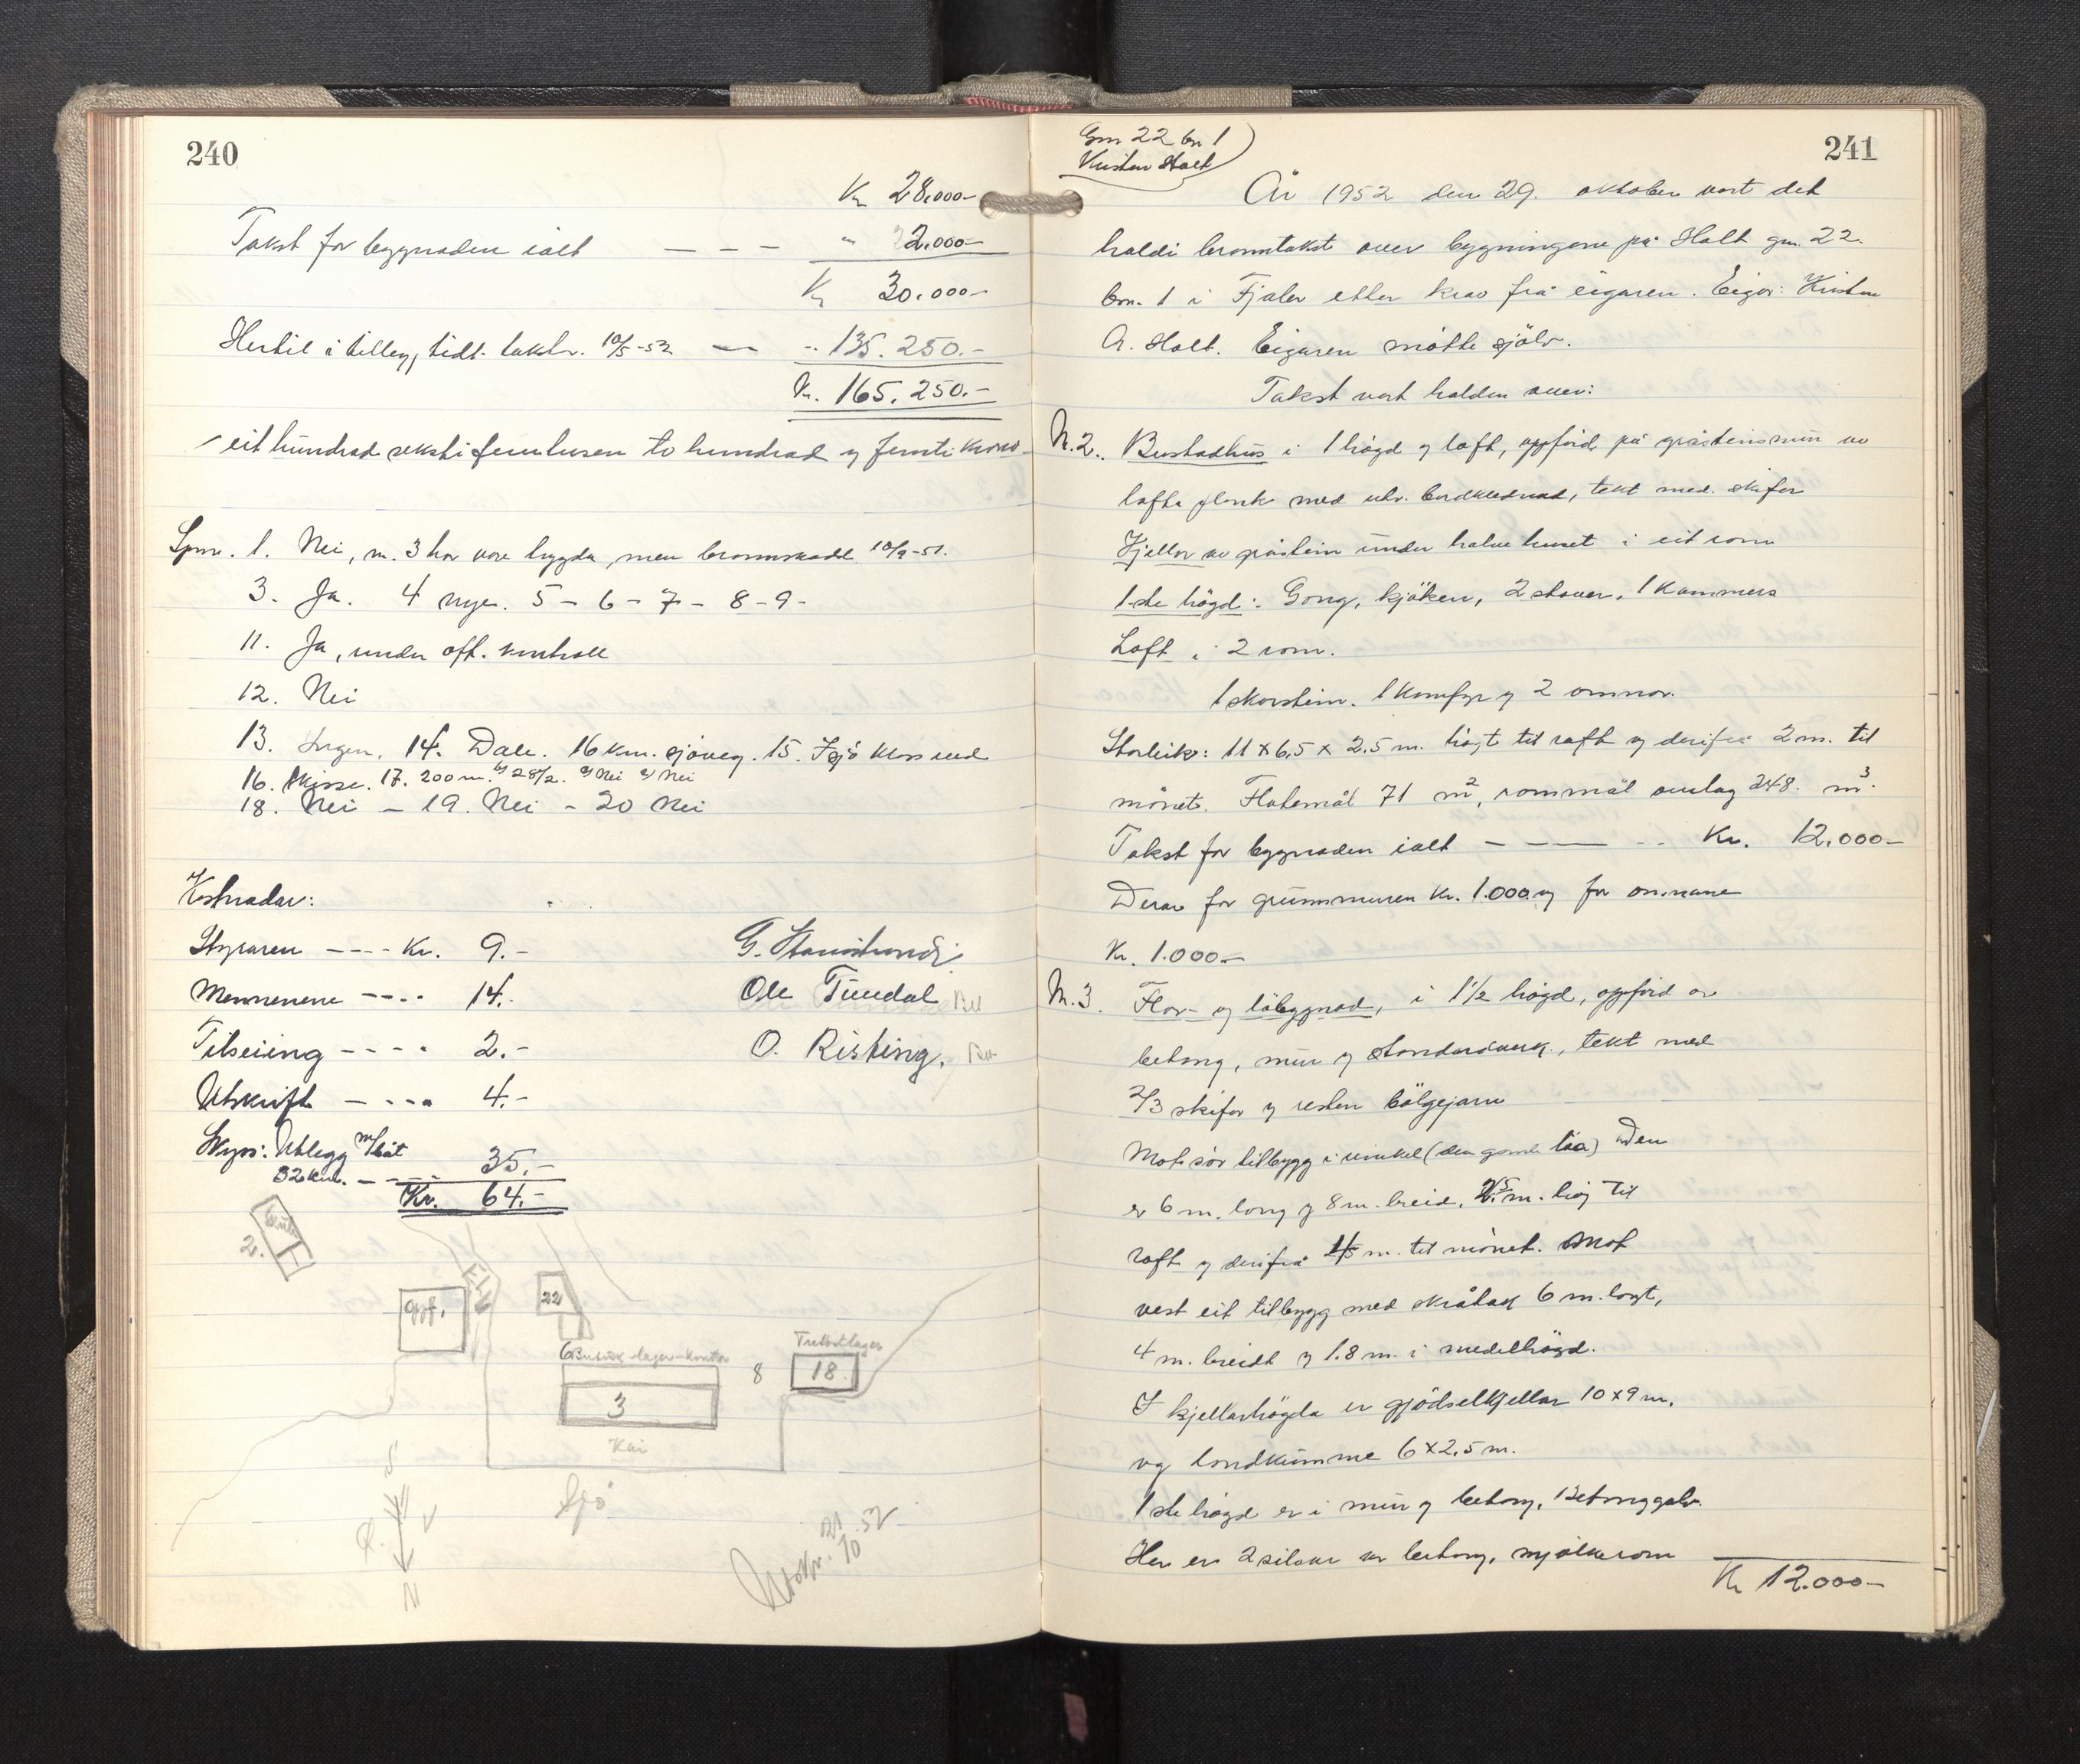 240
Kr 28.000-
Takst for bygnaden ialt — — — " 2.000-
Kr 30.000-
Hertil i tillegg, tidl. takstn. 10/5-52 — " 135.250.-
Kr. 165.250.-
eit hundrad seksti femtusen to hundrad og femti kroner
Spm. 1. Nei, nr. 3 har vore bygd, men brannskadd 10/9-51.
3. Ja. 4 nye. 5 - 6 - 7 - 8 - 9 -
11. Ja, under off. kontroll
12. Nei
13. Ingen. 14. Dale. 16 km. sjöveg. 15. Sjö
16. Skisse. 17. 200 m. b) 28/2. c) Nei d) Nei
18. Nei - 19. Nei - 20 Nei
Kostnadar:
Styraren ---- Kr. 9.-
G.
Mennenene ---- 14.-
Ole Tundal
Tilseiing ---- 2.-
O. Risting.
Utskrift - --- 4.-
Skyss: Utlegg m/båt 35.-
32 km. - -
Kr. 64.-
2.
Oppf.
Elv
22
6 Butikk-lager-kontor
8
Trelastlager
18
3
Kai
Sjö
S
V
N
Utskr. 21/10 52
Gnr 22 bn 1
Kristen Holt
241
År 1952 den 29. oktober vart det
haldi branntakst over bygningene på Holt gnr. 22.
bnr. 1 i Fjaler etter krav frå eigaren. Eigar: Kristen
A. Holt. Eigaren møtte sjölv.
Takst vart halden over:
Nr. 2. Bustadhus i 1 högd og loft, oppförd på gråsteinsmur av
lafta plank med utv. bordklednad, tekt med skifer
Kjellar av gråstein under halve huset i eit rom
1ste högd: Gong, kjöken, 2 stover, 1 kammers
Loft i 2 rom.
1 skorstein. 1 komfyr og 2 omnar.
Storleik: 11 x 6,5 x 2.5 m. högt til raft og derifrå 2 m. til
mönet. Flatemål 71 m2, rommål omlag 248. m3.
Takst for bygnaden ialt - - — - - Kr. 12.000-
Derav for grunnmuren kr. 1.000 og for omnane
Kr. 1.000-
Nr. 3. Flor- og löbygnad, i 1½ högd, oppförd av
betong, mur og standardverk, tekt med
2/3 skifer og resten bölgejarn
Mot sör tilbygg i vinkel (den gamle löa) Den
er 6 m. long og 8 m. breid, 2.5 m. høg til
raft og derifrå m. til mönet. Mot
vest eit tilbygg med skråtak 6 m. langt,
4 m. breidt og 1.8 m. i medelhögd.
I kjellarhögda er gjödselkjellar 10 x 9 m.
og landkumme 6 x 2.5 m.
1ste högd er i mur og betong, Betonggolv.
Her er 2 siloar av betong, mjølkerom
Kr 12.000-